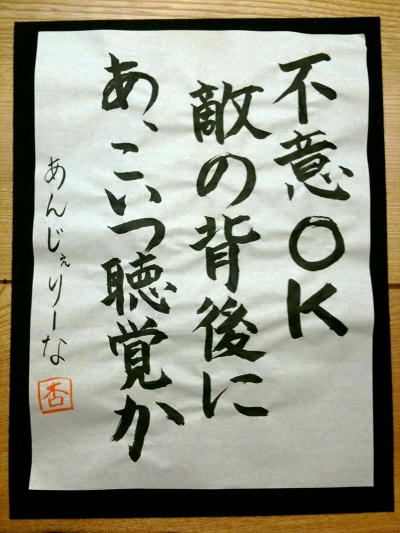 不意OK
敵の背後に
あ、こいつ聴覚か
あんじぇりーな
杏